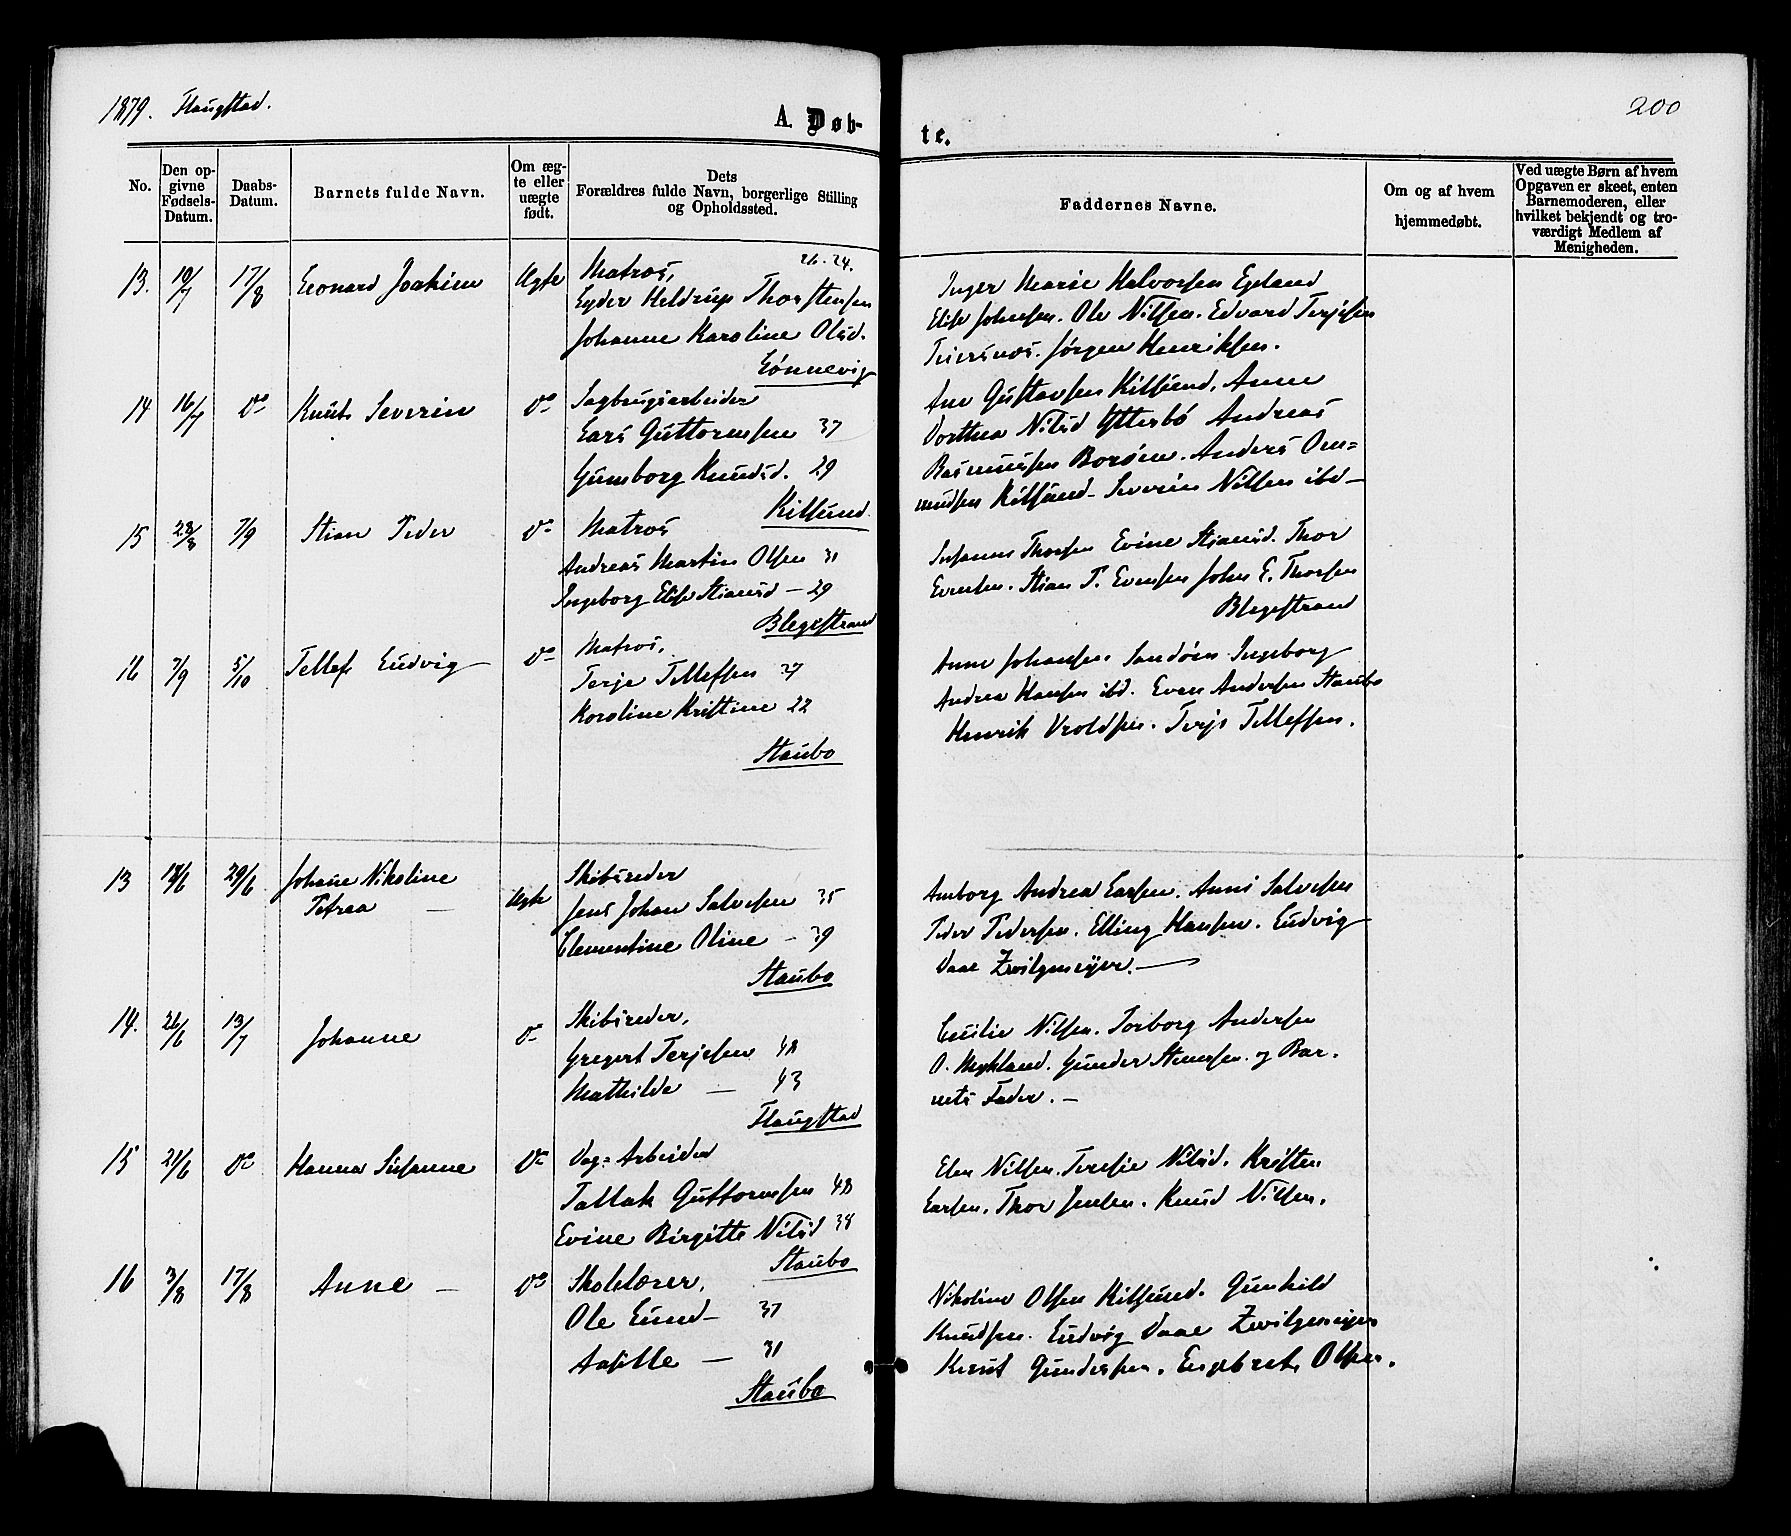 1879. Flaugstad.
200
A. Døb-
te.
No.
Den op-
givne
Fødsels-
Datum.
Daabs-
Datum.
Barnets fulde Navn.
Om æg-
te eller
uægte
født.
Dets
Forældres fulde Navn, borgerlige Stilling
og Opholdssted.
Faddernes Navne.
Om og af hvem
hjemmedøbt.
Ved uægte Børn af hvem
Opgaven er skeet, enten
Barnemoderen, eller
hvilket bekjendt og tro-
værdigt Medlem af
Menigheden.
13. 19/7 17/8 Leonard Joakim Ægte Matros, 26. 24.
Eyder Heldrup Thorstensen
Johanne Karoline Olsd.
Lønnevig
Inger Marie Halvorsen Egeland
Elise Johnsen. Ole Nilsen. Edvard Terjesen
Teiersnæs. Jørgen Henriksen.
14 16/7 Do Knut Severin Do Sagbrugsarbeider
Lars Guttormsen 37
Gunborg Knudsd. 29
Kilsund.
Ane Gustavsen Kilsund. Anne
Dorthea Nilsd Ytterbø Andreas
Rasmussen Borøen. Anders Om=
mundsen Kilsund - Severin Nilsen ibd -
15 28/8 7/9 Stian Peder Do Matros
Andreas Martin Olsen 31
Ingeborg Elise Stiansd - 29
Blegestrand
Susanne Thorsen Evine Stiansd. Thor
Evensen. Stian P. Evensen John E. Thorsen
Blegestrand
16 7/9 5/10 Tellef Ludvig Do Matros,
Terje Tellefsen 27
Karoline Kristine 22
Staubo
Anne Johansen Sandøen Ingeborg
Andrea Hansen ibd. Even Andersen Staubo
Henrik Vroldsen. Terje Tellefsen.
13 18/6 29/6 Johane Nikoline
Petrea - Ægte Skibsreder
Jens Johan Salvesen 35
Clementine Oline - 39
Staubo
Amborg Andrea Larsen. Anne Salvesen
Peder Pedersen. Elling Hansen. Ludvig
Daae Zwilgmeyer. -
14. 26/6 13/7 Johanne Do Skibsreder,
Gregert Terjesen 48
Mathilde - 43
Flaugstad
Emilie Nilsen. Torborg Andersen
O. Mykland. Gunder Stensen. og Bar.
nets Fader. -
15 21/6 Do Hanna Susanne Do Dag= Arbeider
Tallak Guttormsen 48
Evine Birgitte Nilsd 38
Staubo
Elen Nilsen. Teresie Nilsd. Kristen
Larsen. Thor Jensen. Knud Nilsen.
16 3/8 17/8 Anne - Do Skolelærer,
Ole Lund - 37
Aasille - 31
Staubo
Nikoline Olsen Kilsund. Gunhild
Knudsen. Ludvig Daae Zwilgmeyer
Knut Gundersen. Engebret Olsen.